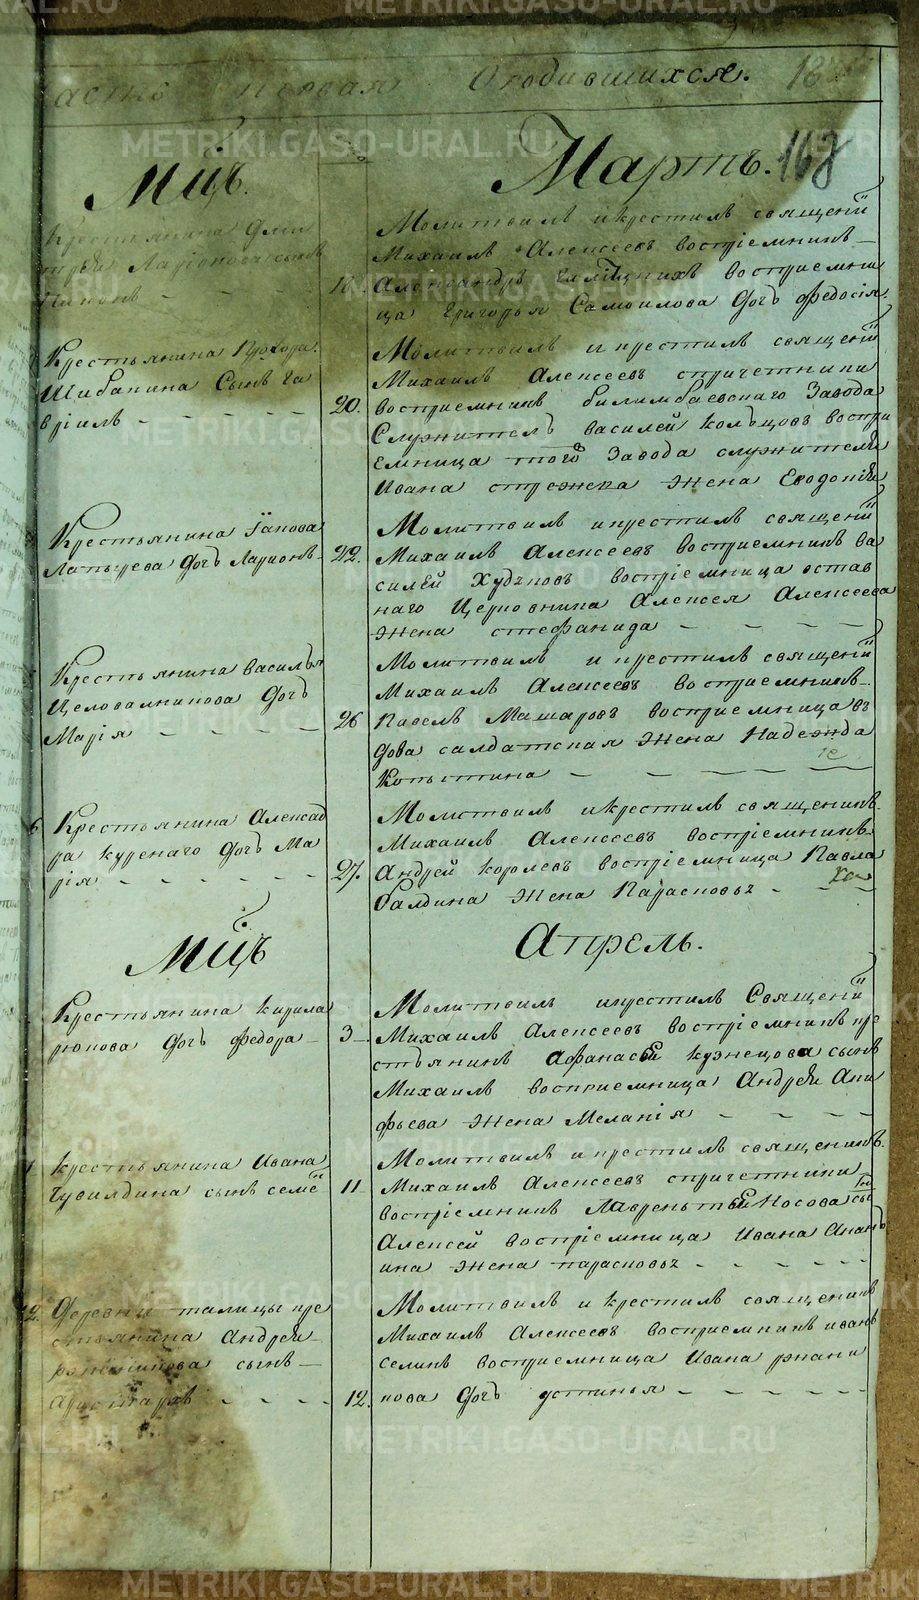 первая О родившихся.
168
Мцъ. Мартъ.
Крестьянина Дми
трея Ларіонова сынъ
18.
Молитвилъ и крестилъ священій
Михаилъ Алексеевъ воспріемникъ —
Александръ воспріемни
ца Григорья Самоилова дочь Федосія.
Крестьянина Прохора
Шибанина Сынъ Га
вріилъ — — — — —
20.
Молитвилъ и крестилъ священій
Михаилъ Алексеевъ спричетники
воспріемникъ билимбаевскаго Завода
Служитель василей кольцовъ воспрі
емница того Завода служителя
Ивана жена Евдокія
Крестьянина
дочь Ларионъ
22.
Молитвилъ и крестилъ священій
Михаилъ Алексеевъ воспріемникъ ва
силей Худяковъ воспріемница остав
наго Церковника Алексея Алексеева
жена стефанида — — — —
Крестьянина Василья
Целовалникова дочь
Марія — — — — —
26
Молитвилъ и крестилъ священій
Михаилъ Алексеевъ воспріемникъ —
Павелъ Машаровъ воспріемница в
дова салдатская жена Надежда
Копытина — — — — —
6 Крестьянина Алексад
ра куренаго дочь Ма
рія — — — — —
27.
Молитвилъ и крестилъ священникъ
Михаилъ Алексеевъ воспріемникъ
Андрей королевъ воспріемница Павла
балдина жена Парасковья — — —
Мцъ Апрель.
Крестьянина Кирила
рюкова дочь федора —
3 —
Молитвилъ икрестилъ Священій
Михаилъ Алексеевъ воспріемникъ кре
стьянинъ Афанасей кузнецова сынъ
Михаилъ воспріемница Андрея Ани
фьева жена Меланія — — — —
крестьянина Ивана
Чувилдина сынъ семе
11 —
Молитвилъ и крестилъ священникъ
Михаилъ Алексеевъ спричетники
воспріемникъ Лаврентьей Носова сы
Алексей воспріемница Ивана
ина жена парасковья — — — — —
12. Деревни талицы кре
стьянина Андрея
сынъ —
Аристархъ — — — —
12.
Молитвилъ и крестилъ священникъ
Михаилъ Алексеевъ воспріемникъ иванъ
селинъ воспріемница Ивана ржани
кова дочь устинья — — — — —
METRIKI.GASO-URAL.RU